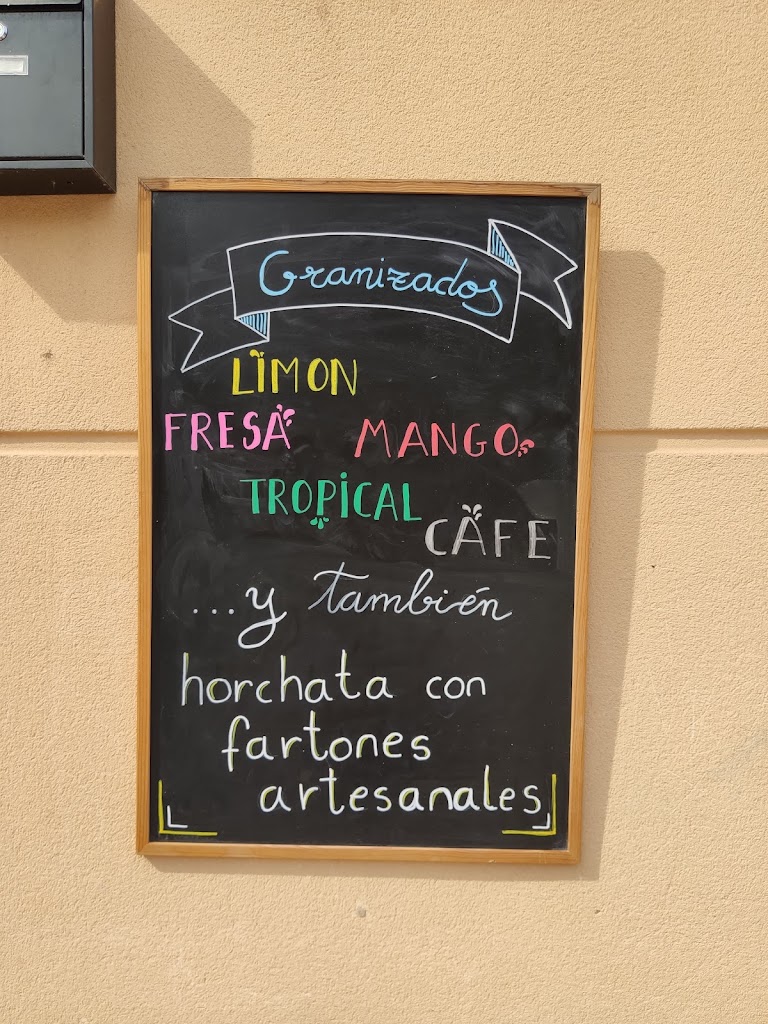 Granizados
LIMON
FRESA MANGO
TROPICAL
CAFE
...y también
horchata con
fartones
artesanales